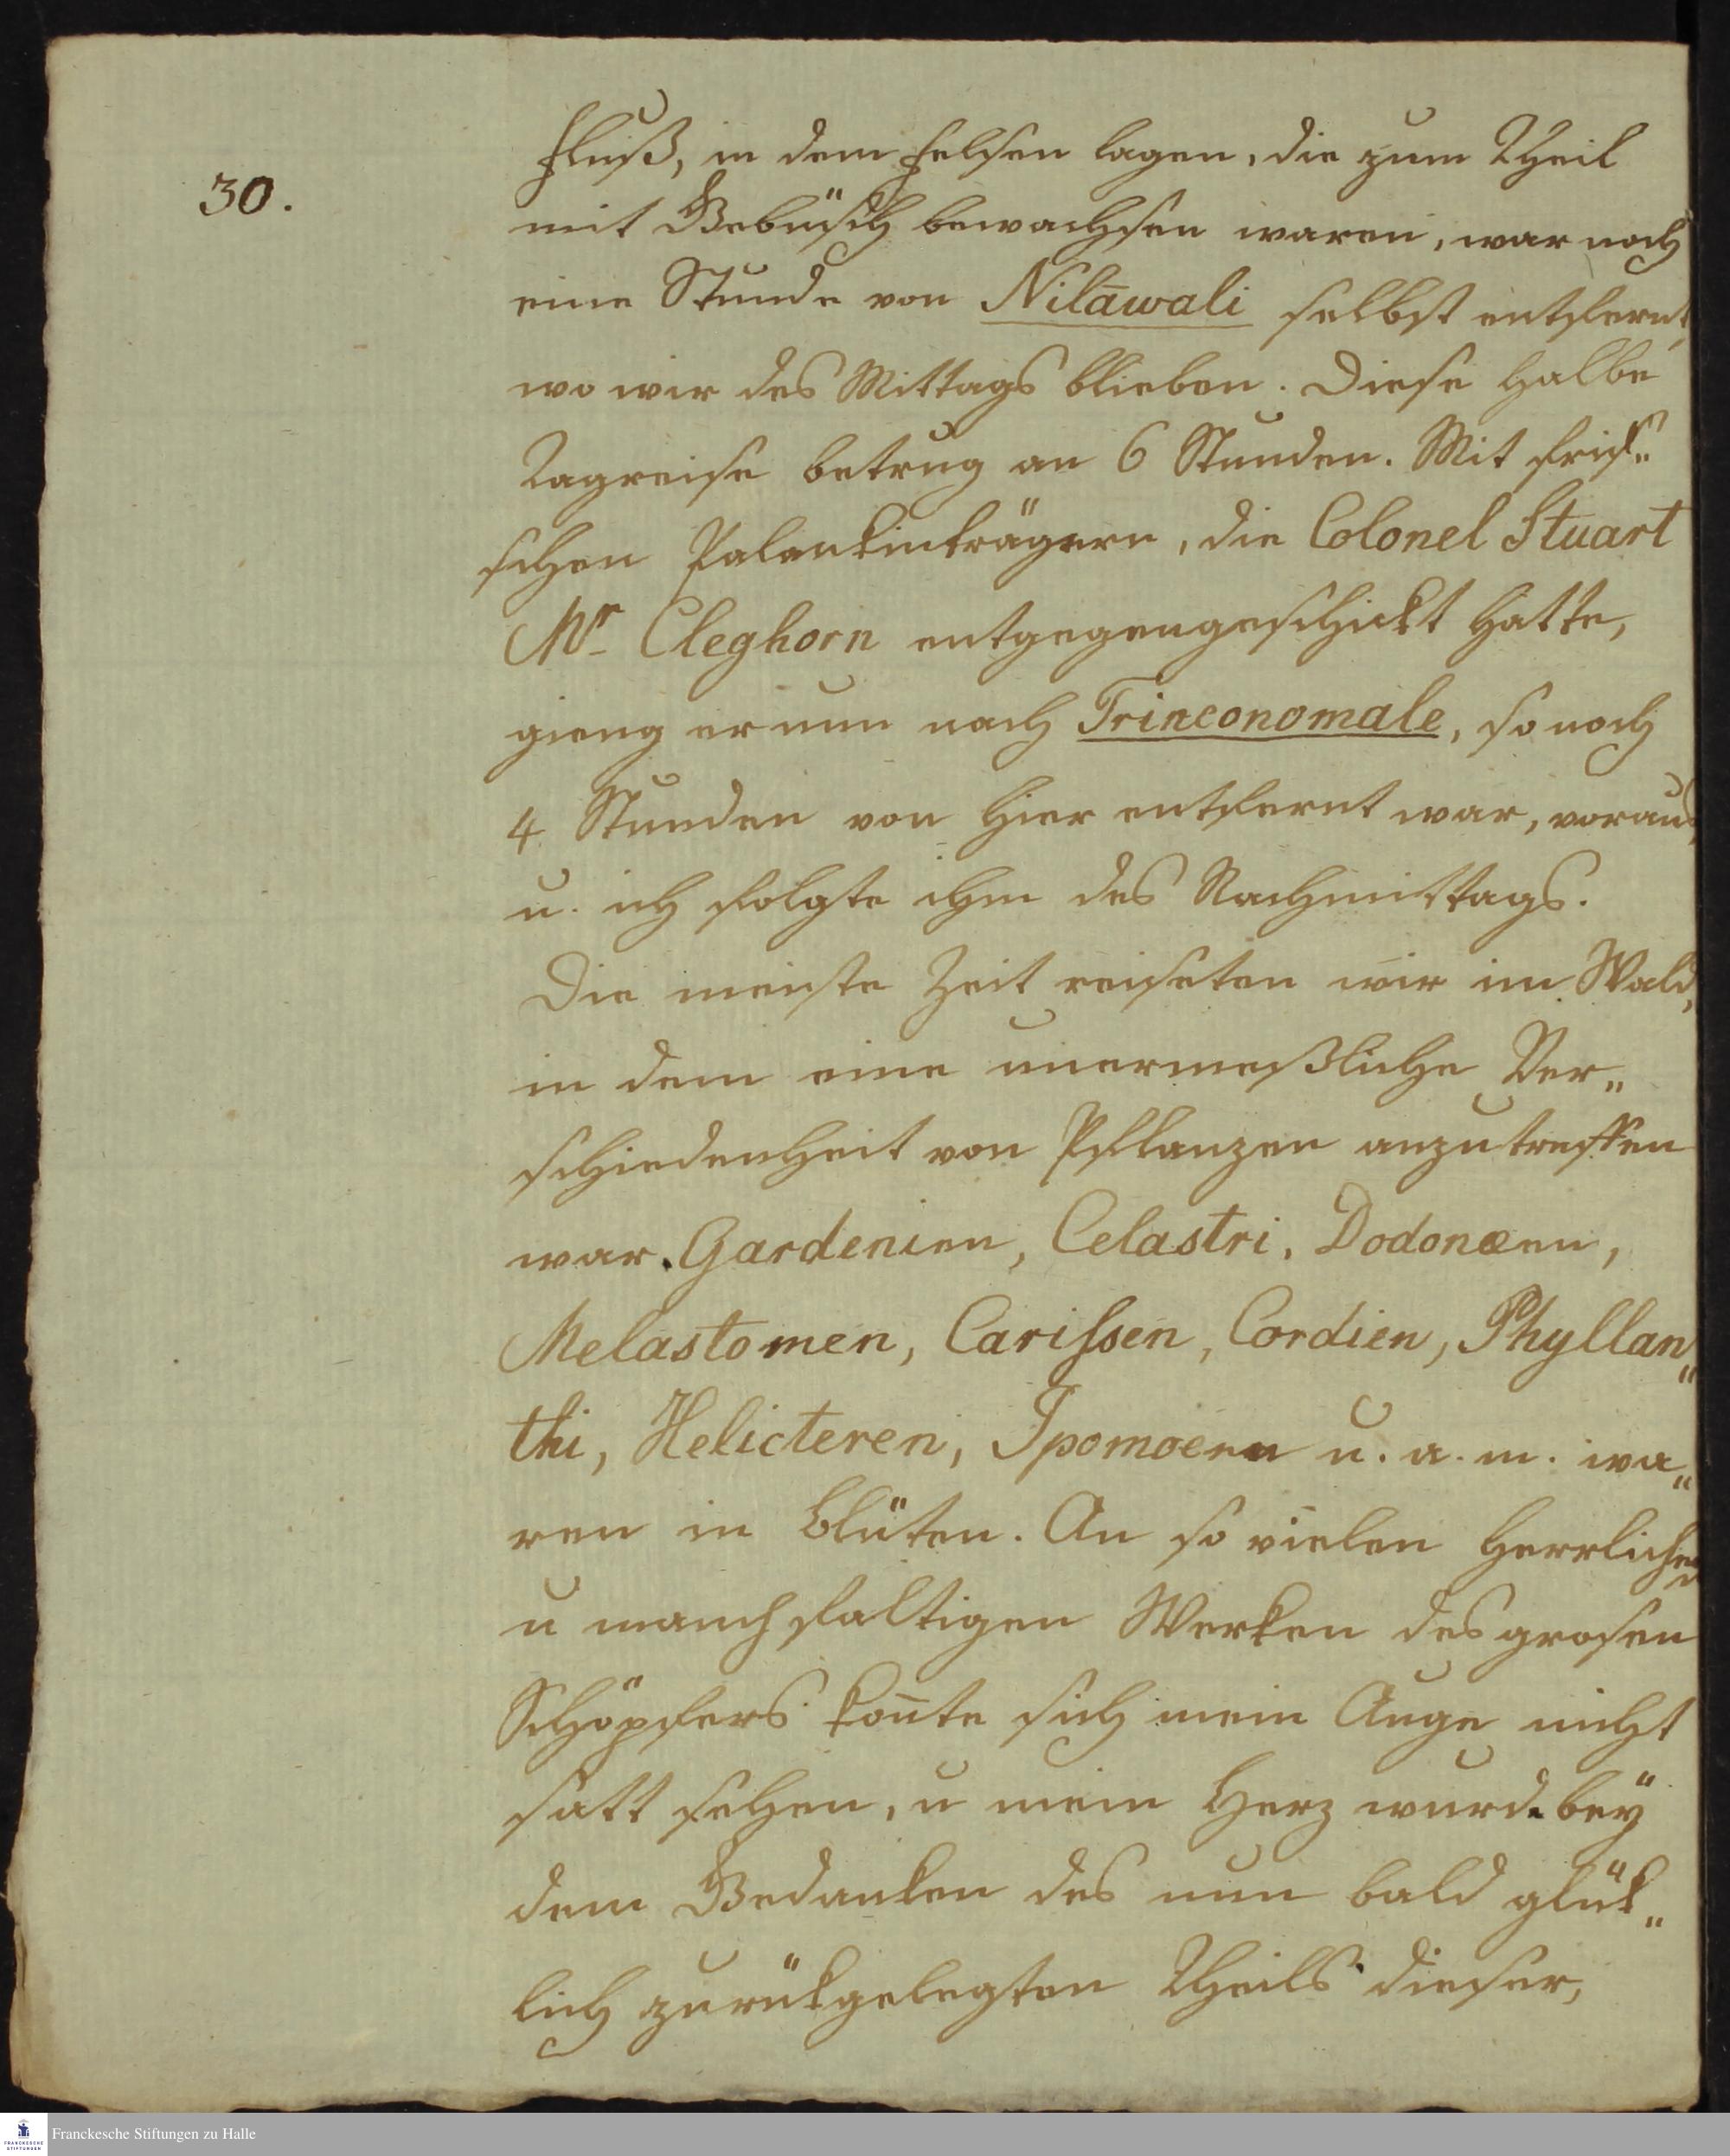 30.
Fluß, in dem Felsen lagen, die zum Theil
mit Gebüsch bewachsen waren, war noch
eine Stunde von Nilāwali selbst entfernt,
wo wir des Mittags blieben. Diese halbe
Tagreise betrug an 6 Stunden. Mit fris„
schen Palankinträgern, die Colonel Stuart
Mr Cleghorn entgegengeschickt hatte,
gieng er nun nach Trinconomale, so noch
4 Stunden von hier entfernt war, voraus,
u. ich folgte ihm des Nachmittags.
Die meiste Zeit reiseten wir im Wald,
in dem eine unermeßliche Ver„
schiedenheit von Pflanzen anzutreffen
war. Gardenien, Celastri, Dodonæen,
Melastomen, Carissen, Cordien, Phyllan„
thi, Helicteren, Ipomoeen u. a. m. wa„
ren in Blüten. An so vielen herrlichen
u manchfaltigen Werken des grosen
Schöpfers kon̄te sich mein Auge nicht
satt sehen, u mein Herz wurde beÿ
dem Gedanken des nun bald glük„
lich zurükgelegten Theils dieser,
Franckesche Stiftungen zu Halle
FRANCKESCHE
STIFTUNGEN